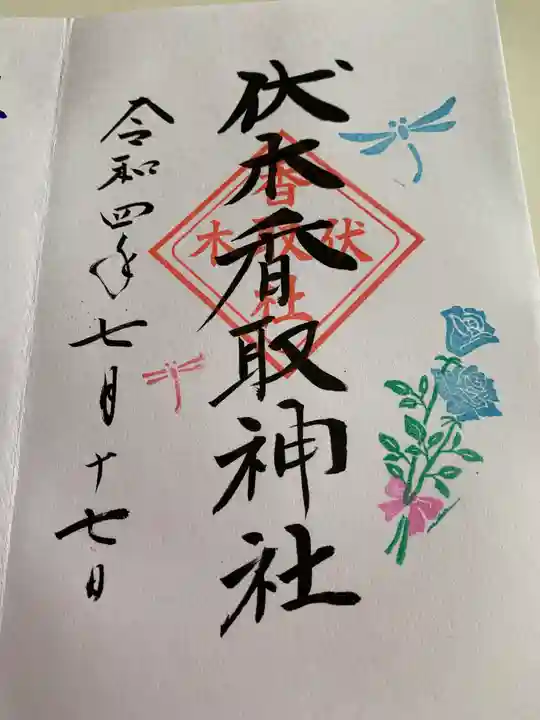 伏木香取神社
香取社
伏木
令和四年七月十七日